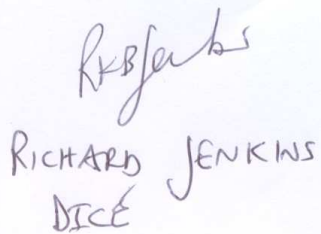 RKBJenkins
RICHARD JENKINS
DICE